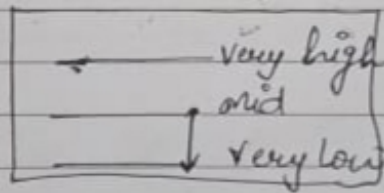 very high
mid
very low